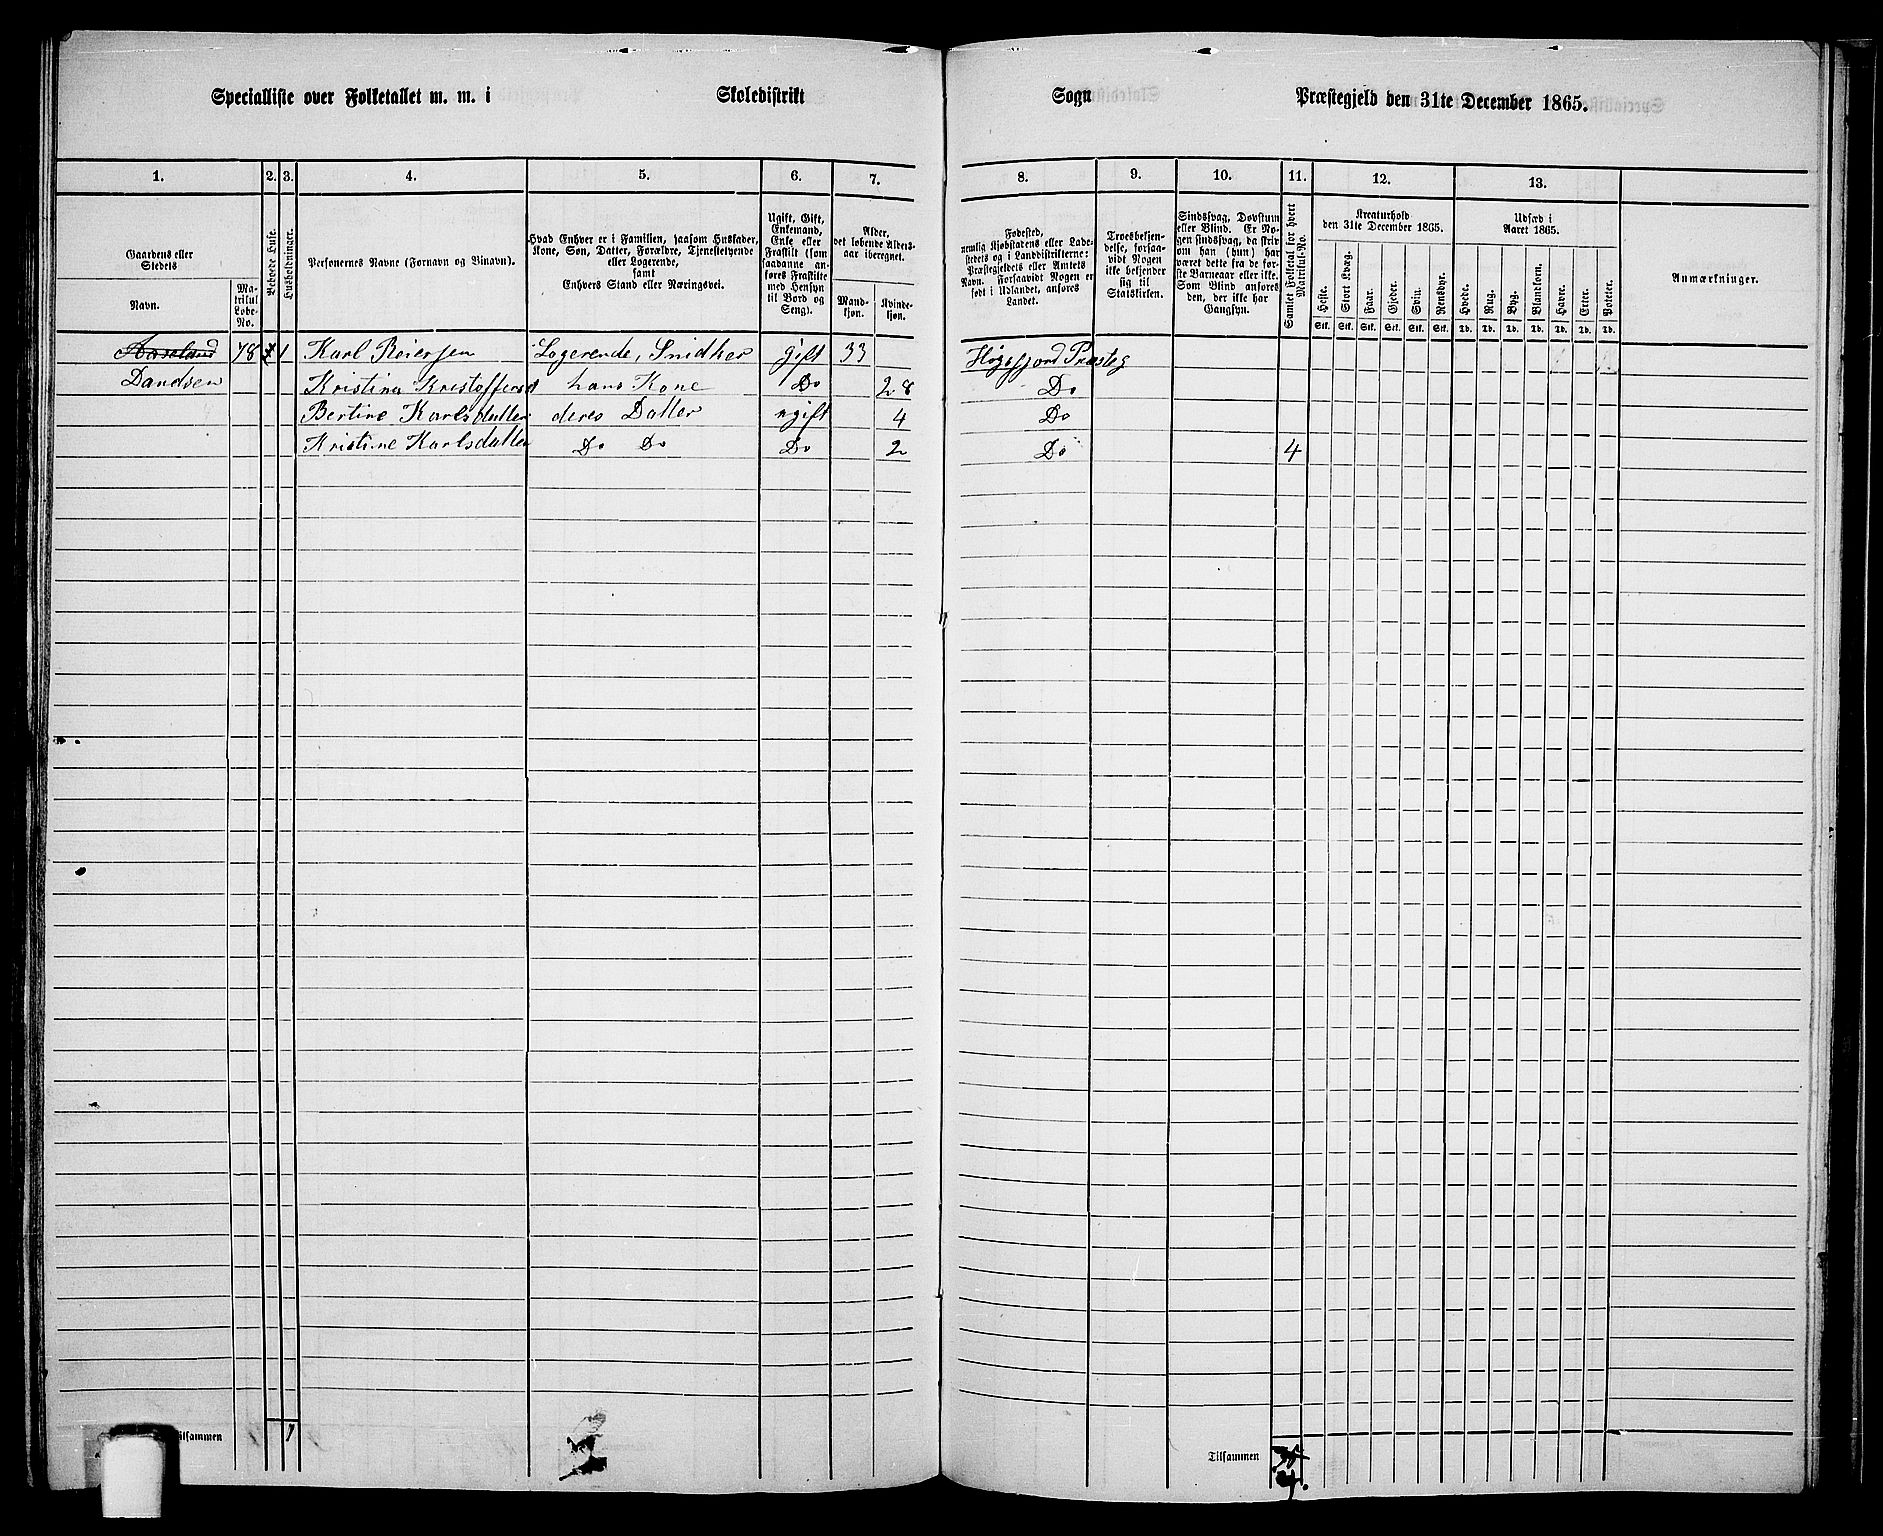 Speciallifte over Folketallet m. m. i Skoledistrikt Sogn Præstegjeld den 31te December 1865.
1. 2. 3. 4. 5. 6. 7. 8. 9. 10. 11. 12. 13.
Gaardens eller
Stedets
Navn.
Matrikul
Løbe-
No.
Beboede Huse.
Husholdninger.
Personernes Navne (Fornavn og Binavn).
Hvad Enhver er i Familien, saasom Husfader,
Kone, Søn, Datter, Forældre, Tjenestetyende
eller Logerende,
samt
Enhvers Stand eller Næringsvei.
Ugift, Gift,
Enkemand,
Enke eller
Fraskilt (som
saadanne an-
føres Fraskilte
med Hensyn
til Bord og
Seng).
Alder,
det løbende Alders-
aar iberegnet.
Mand-
kjøn.
Kvinde-
kjøn.
Fødested,
nemlig Kjøbstadens eller Lade-
stedets og i Landdistrikterne:
Præstegjeldets eller Amtets
Navn. Forsaavidt Nogen er
født i Udlandet, anføres
Landet.
Troesbekjen-
delse, forsaa-
vidt Nogen
ikke bekjender
sig til
Statskirken.
Sindssvag, Døvstum
eller Blind. Er No-
gen sindssvag, da skriv
om han (hun) har
været dette fra de før-
ste Barneaar eller ikke.
Som Blind anføres
den, der ikke har
Gangsyn.
Samlet Folketal for hvert
Matrikul-No.
Kreaturhold
den 31te December 1865.
Heste. Stort Kvæg. Faar. Gjeder. Svin. Rensdyr.
Stk. Stk. Stk. Stk. Stk. Stk.
Udsæd i
Aaret 1865.
Hvede. Rug. Byg. Blandkorn. Havre. Erter. Poteter.
Td. Td. Td. Td. Td. Td. Td.
Anmærkninger.
Aaseland 78 1 Karl Reiersen Logerende, Snidker gift 33 Høgsfjord Præsteg
Dandsen Kristina Krestoffersd hans Kone Do 28 Do
Bertine Karlsdatter deres Datter ugift 4 Do
Kristine Karlsdatter Do Do Do 2 Do 4
Tilsammen 1 Tilsammen
4.